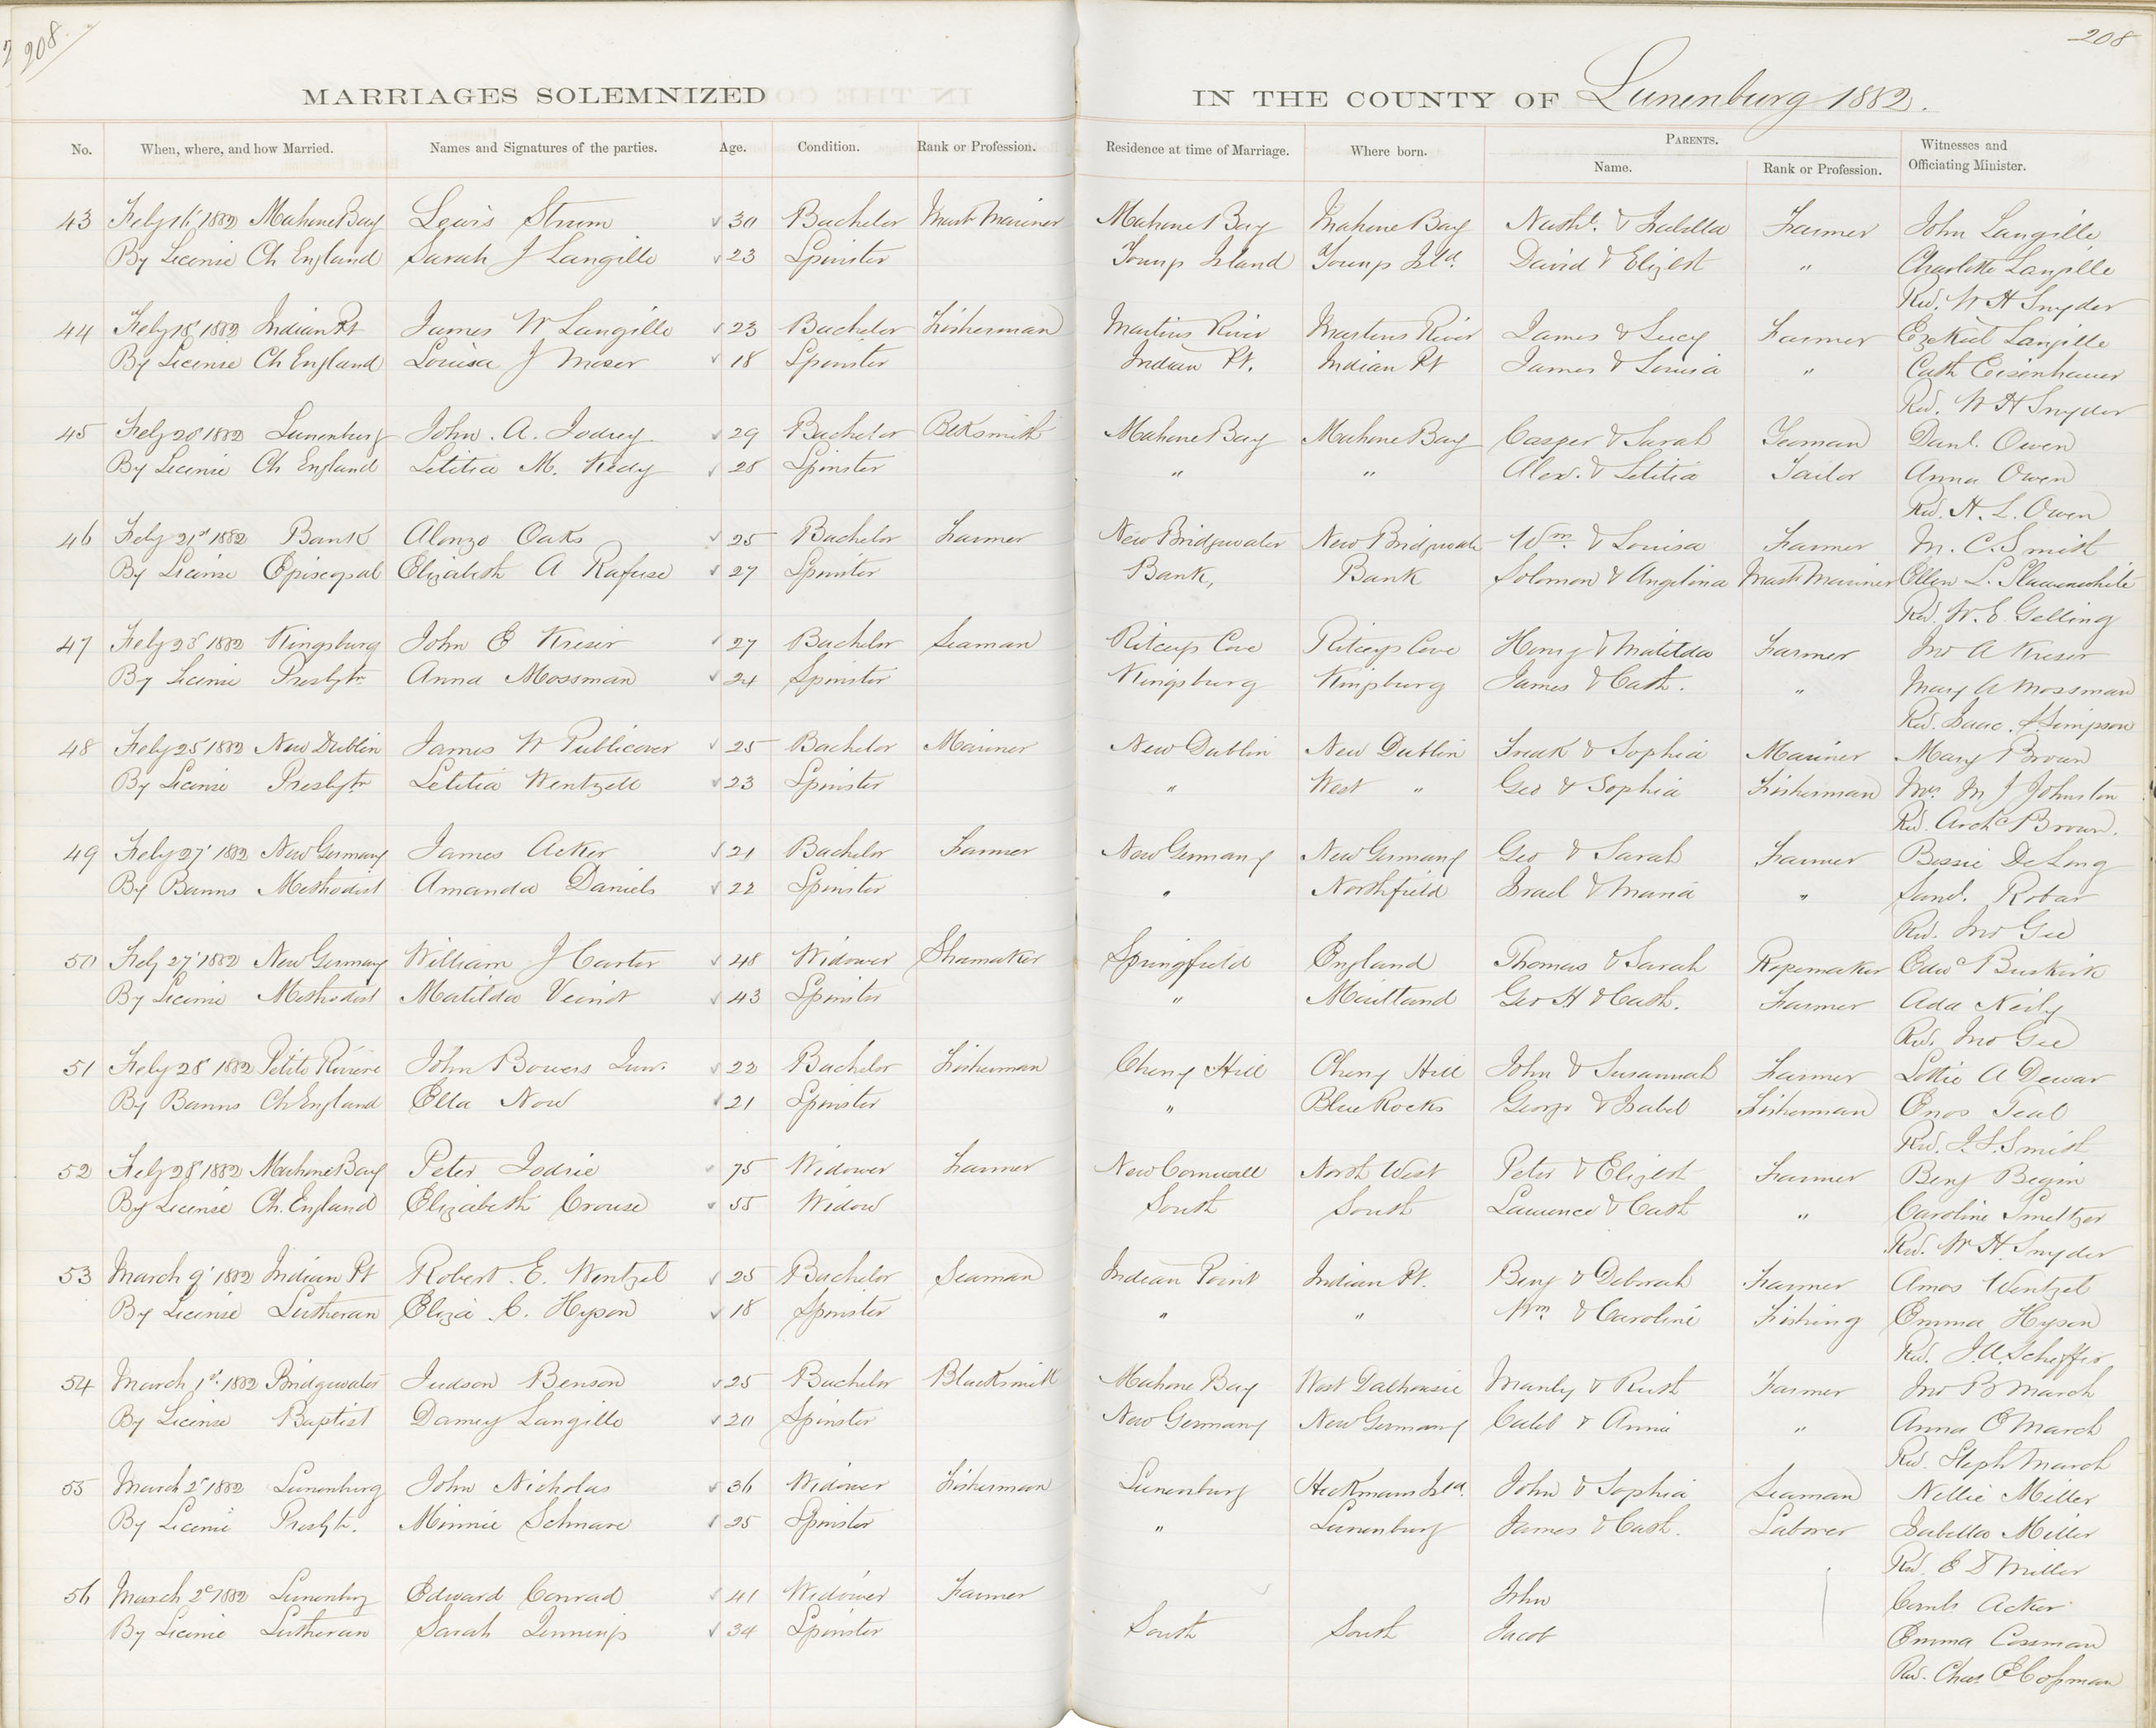 208.
208
MARRIAGES SOLEMNIZED IN THE COUNTY OF Lunenburg 1882.
No. When, where, and how Married. Names and Signatures of the parties. Age. Condition. Rank or Profession. Residence at time of Marriage. Where born. PARENTS. Name. Rank or Profession. Witnesses and Officiating Minister.
43 Feby 16' 1882 Mahone Bay Lewis Strum 30 Bachelor Mast Mariner Mahone Bay Mahone Bay Nathl. & Isabella Farmer John Langille
By License Ch England Sarah J Langille 23 Spinster Youngs Island Youngs Isld. David & Elizbt " Charlotte Langille
Rev. W H Snyder
44 Feby 18' 1882 Indian Pt James W Langille 23 Bachelor Fisherman Martins River Martins River James & Lucy Farmer Ezekiel Langille
By License Ch England Louisa J Moser 18 Spinster Indian Pt. Indian Pt James & Louisa " Cath Eisenhauer
Rev. W H Snyder
45 Feby 20' 1882 Lunenburg John. A. Jodrey 29 Bachelor Blksmith Mahone Bay Mahone Bay Casper & Sarah Yeoman Danl. Owen
By License Ch England Letitia M. Kedy 28 Spinster " " Alex. & Letitia Tailor Anna Owen
Rev. H. L. Owen
46 Feby 21st 1882 Bank Alonzo Oaks 25 Bachelor Farmer New Bridgewater New Bridgwate Wm. & Louisa Farmer M. C. Smith
By License Episcopal Elizabeth A Rafuse 27 Spinster Bank, Bank Solomon & Angelina Mast Mariner Ellen L. Slauenwhite
Rev. W. E. Gelling
47 Feby 23' 1882 Kingsburg John E Kreser 27 Bachelor Seaman Ritceys Cove Ritceys Cove Henry & Matilda Farmer Jno A Kreser
By License Presbytr. Anna Mossman 24 Spinster Kingsburg Kingsburg James & Cath. " Mary A Mossman
Rev. Isaac. Simpson
48 Feby 25' 1882 New Dublin James W Publicover 25 Bachelor Mariner New Dublin New Dublin Fredk & Sophia Mariner Mary Brown
By License Presbytr Letitia Wentzell 23 Spinster " West " Geo & Sophia Fisherman Mrs. M J Johnston
Rev. Archd Brown.
49 Feby 27' 1882 New Germany James Acker 21 Bachelor Farmer New Germany New Germany Geo & Sarah Farmer Bessie DeLong
By Banns Methodist Amanda Daniels 22 Spinster " Northfield Israel & Maria " Saml. Robar
Rev. Jno Gee
50 Feby 27' 1882 New Germany William J Carter 48 Widower Shomaker Springfield England Thomas & Sarah Ropemaker Edwd Buskirk
By License Methodist Matilda Veinot 43 Spinster " Maitland Geo H & Cath. Farmer Ada Neily
Rev. Jno Gee
51 Feby 28' 1882 Petite Riviere John Bowers Junr. 22 Bachelor Fisherman Cherry Hill Cherry Hill John & Susannah Farmer Lottie A Dewar
By Banns Ch England Ella Now 21 Spinster " Blue Rocks George & Isabel Fisherman Enos Teal
Rev. J. S. Smith
52 Feby 28' 1882 Mahone Bay Peter Jodrie 75 Widower Farmer New Cornwall North West Peter & Elizbt Farmer Benj Begin
By License Ch. England Elizabeth Crouse 55 Widow South South Laurence & Cath " Caroline Smeltzer
Rev. W H. Snyder
53 March 9' 1882 Indian Pt Robert. E. Wentzel 25 Bachelor Seaman Indian Point Indian Pt. Benj & Deborah Farmer Amos Wentzel
By License Lutheran Eliza C. Hyson 18 Spinster " " Wm. & Caroline Fishing Emma Hyson
Rev. J. A. Scheffer
54 March 1st. 1882 Bridgewater Judson Benson 25 Bachelor Blacksmith Mahone Bay West Dalhousie Manly & Ruth Farmer Jno B March
By License Baptist Damey Langille 20 Spinster New Germany New Germany Caleb & Annie " Anna O March
Rev. Steph March
55 March 2' 1882 Lunenburg John Nicholas 36 Widower Fisherman Lunenburg Heckmans Isld. John & Sophia Seaman Nellie Miller
By License Presbytr. Minnie Schnare 25 Spinster " Lunenburg James & Cath. Laborer Isabella Miller
Rev. E D Miller
56 March 2d 1882 Lunenburg Edward Conrad 41 Widower Farmer John Acker
By License Lutheran Sarah Jennings 34 Spinster South South Jacob Emma Cossman
Rev. Chas. E Cossman